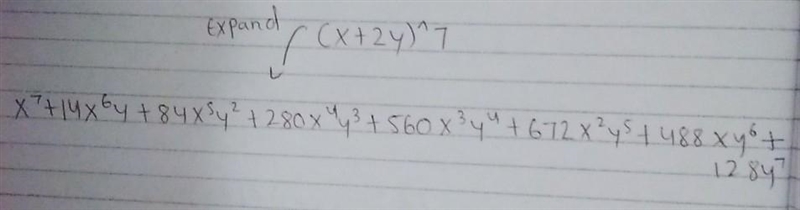 Expand (x+2y)^7
x⁷+14x⁶y+84x⁵y²+280x⁴y³+560x³y⁴+672x²y⁵+488xy⁶+
128y⁷